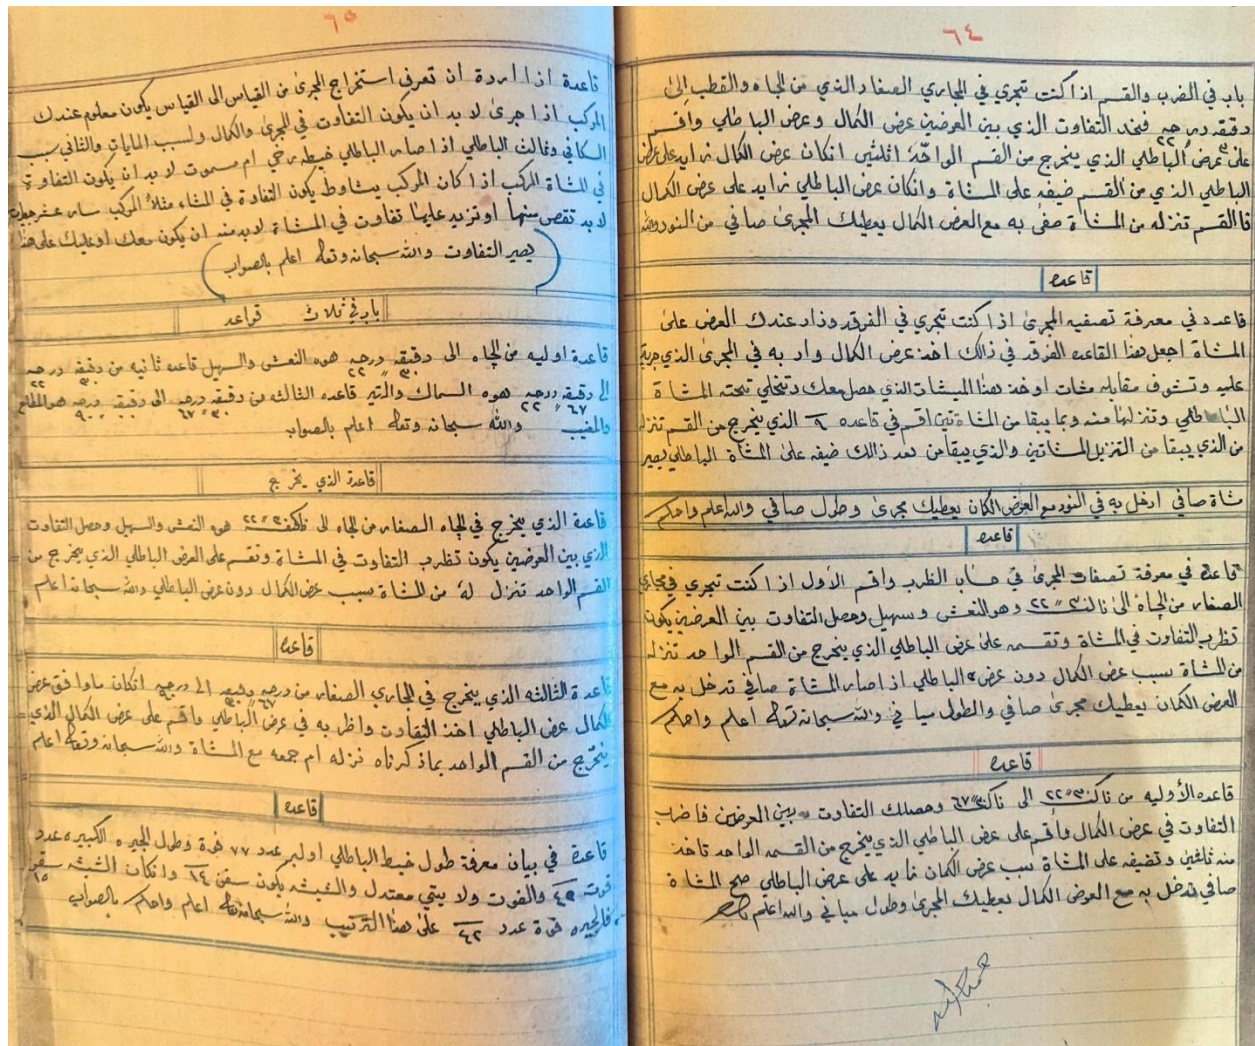 ٦٤
باب في الضرب والقسم اذا كنت تجري في المجاري الصغار الذي من الجاه والقطب الى
دقيقه درجه ٢٢ فخذ التفاوت الذي بين العرضين عرض الكمال وعرض الباطلي واقسم
على عرض الباطلي الذي ينخرج من القسم الواحد اثلثين انكان عرض الكمال زايد على عرض
الباطلي الذي من القسم ضيفه على المشاة وانكان عرض الباطلي زايد على عرض الكمال
فالقسم تنزله من المشاة صفي به مع العرض الكمال يعطيك المجرى صافي من النور والله
قاعده
قاعده في معرفة تصفيه المجرى اذا كنت تجري في الفرقد وزاد عندك العرض على
المشاة اجعل هذا القاعده الفرقد في ذالك اخذ عرض الكمال واد به في المجرى الذي جريت
عليه وتشوف مقابله مشات اوخذ هذا الميشات الذي حصل معك وتخلي تحته المشاة
الباطلي وتنزلها منه وبما يبقا من المشاتين اقسم في قاعده ٩ الذي ينخرج من القسم تنزله
من الذي يبقا من التنزيل المشاتين والذي يبقا من بعد ذالك ضيفه على المشاة الباطلي يصير
مشاة صافي ادخل به في النور مع العرض الكمان يعطيك مجرى وطول صافي والله اعلم واحكم
قاعده
قاعدة في معرفة تصفات المجرى في حساب الظرب واقسم الأول اذا كنت تجري في مجاري
الصغار من الجاه الى ناكنه ٣٠ ٢٢ وهو النعش وسهيل وحصل التفاوت بين العرضين يكون
تظرب التفاوت في المشاة وتقسمه على عرض الباطلي الذي ينخرج من القسم الواحد تنزله
من المشاة سبب عرض الكمال دون عرض الباطلي اذ اصار المشاة صافي تدخل به مع
العرض الكمان يعطيك مجرى صافي والطول صافي والله سبحانه وتعالى اعلم واحكم
قاعده
قاعده الأوليه من ناكنه ٣٠ ٢٢ الى ناكنه ٦٧ وحصلك التفاوت بين العرضين فاضرب
التفاوت في عرض الكمال وأقسم على عرض الباطلي الذي ينخرج من القسمه الواحد تاخذ
منه ثلثين وتضيفه على المشاة سبب عرض الكمان زايد على عرض الباطلي صح المشاة
صافي تدخل به مع العرض الكمال يعطيك المجرى وطول صافي والله اعلم
٦٥
قاعدة اذا اردة ان تعرف استخراج المجرى من القياس الى القياس يكون معلوم عندك
المركب اذا جرى لا بد ان يكون التفاوت في المجرى والكمال ولسبب المايات والثاني سبب
السكاني وثالث الباطلي اذا صار الباطلي خيطه رخي ام مسموت لا بد ان يكون التفاوة
في المشاة المركب اذا كان المركب يشاوط يكون التفاوة في المشاه مثلاً المركب سار عشر
لا بد تنقص منها او تزيد عليها تفاوت في المشاة لابد منه ان يكون معك او عليك على هذا
يصير التفاوت والله سبحانه وتعالى اعلم بالصواب
باب في ثلاث قواعد
قاعدة اوليه من الجاه الى دقيقه ٣٠ درجه ٢٢ هوه النعش والسهيل قاعده ثانيه من دقيقه ٣٠ درجه ٢٢
الى دقيقه درجه ٦٧ ٢٢ هوه السماك والتير قاعده الثالثه من دقيقه ٣٠ درجه ٦٧ الى دقيقه ٠٠ درجه ٩٠ هو المطلع
والمغيب والله سبحانه وتعالى اعلم بالصواب
قاعدة الذي يخرج
قاعدة الذي ينخرج في الجاه الصغار من الجاه الى ناكنه ٣٠ ٢٢ هوه النعش والسهيل وحصل التفاوت
الذي بين العرضين يكون تظرب التفاوت في المشاة وتقسم على العرض الباطلي الذي ينخرج من
القسم الواحد تنزل له من المشاة سبب عرض الكمال دون عرض الباطلي والله سبحانه اعلم
قاعده
قاعدة الثالثه الذي ينخرج في المجاري الصغار من درجه ٦٧ دقيقه ٣٠ الى درجه انكان ماوافق عرض
الكمال عرض الباطلي اخذ التفاوت واظرب به في عرض الباطلي واقسم على عرض الكمال الذي
ينخرج من القسم الواحد بماذكرناه نزله ام جمعه مع المشاة والله سبحانه وتعالى اعلم
قاعده
قاعدة في بيان معرفة طول خيط الباطلي اوليمر عدد ٧٧ فوة وطول الجيره الكبيره عدد
فوت ٤٥ والفوت ولا يبتي معتدل والشيشه يكون سقن ١٤ وانكان الشيشه سقن ١٥
فالجيره فوة عدد ٤٢ على هذا الترتيب والله سبحانه وتعالى اعلم واحكم بالصواب